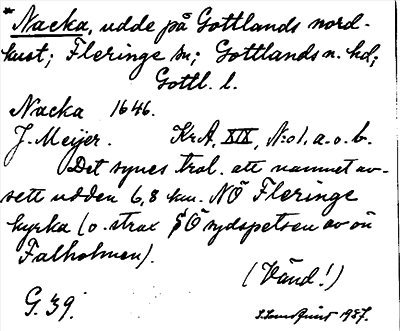 * Nacka, udde på Gottlands nord-
kust; Fleringe sn; Gottlands n. hd;
Gottl. l.
Nacka 1646.
J. Meijer. Kr.A, XIX, N:o 1, a. o. b.
Det synes trol. att namnet av-
sett udden 6,8 km. NÖ Fleringe
kyrka (o. strax SÖ sydspetsen av ön
Falholmen).
(Vänd!)
G. 39. 1937.